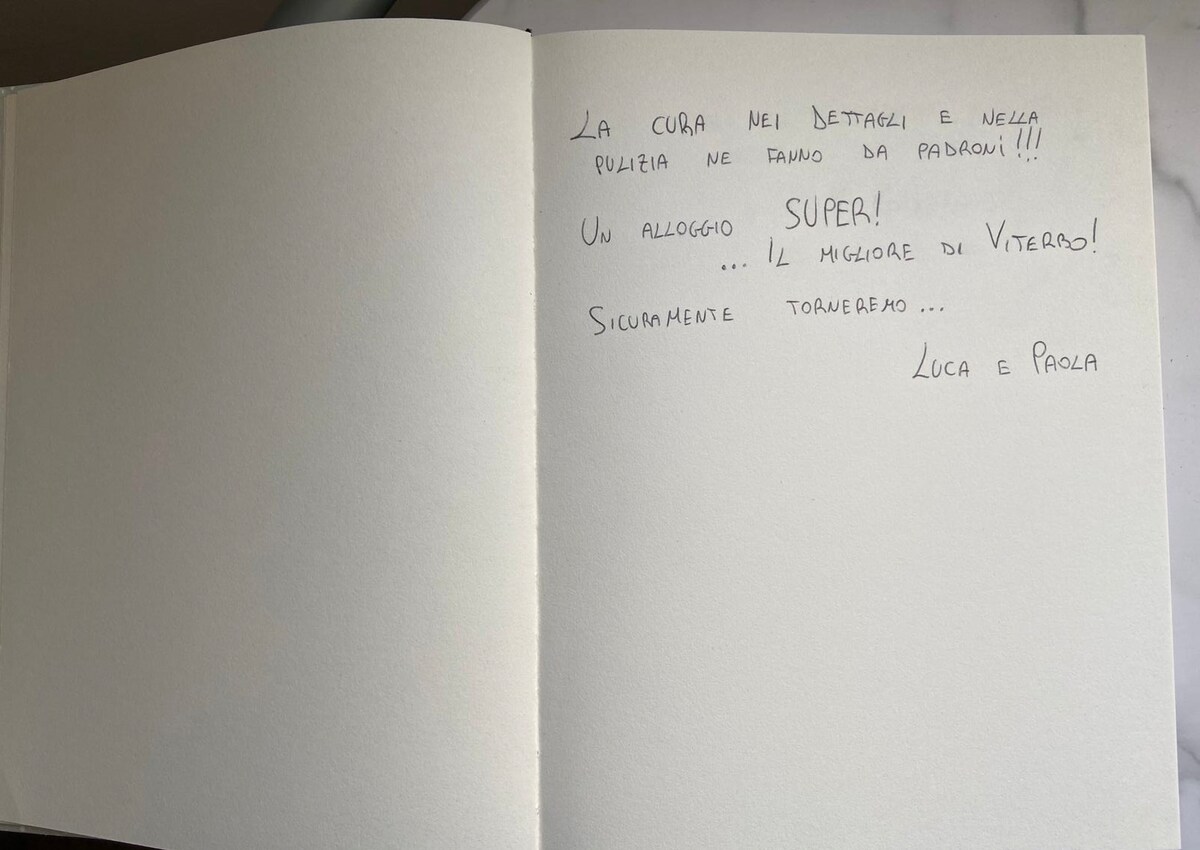 LA CURA NEI DETTAGLI E NELLA
PULIZIA NE FANNO DA PADRONI!!!
UN ALLOGGIO SUPER!
... IL MIGLIORE DI VITERBO!
SICURAMENTE TORNEREMO...
LUCA E PAOLA